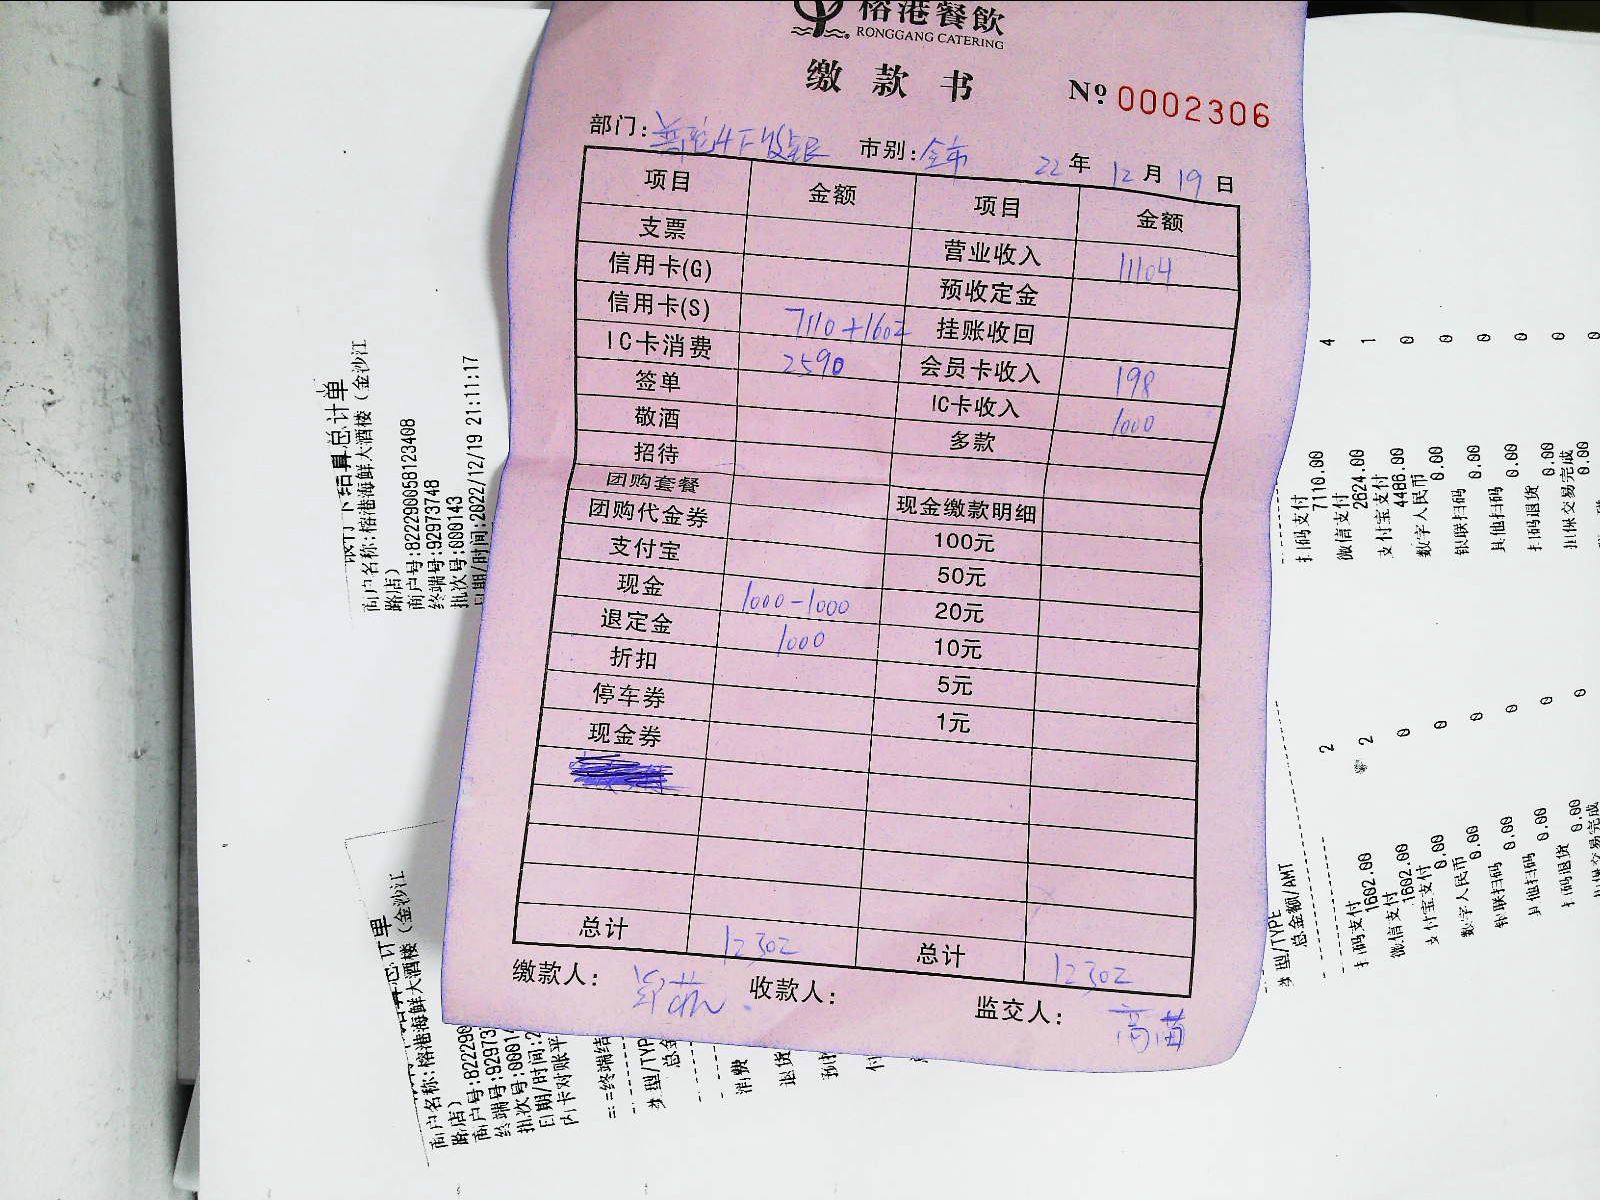 榕港餐飲
RONGGANG CATERING
缴款书 Nº 0002306
部门: 市别:全市 22年12月19日
项目 金额 项目 金额
支票 营业收入 11104
信用卡(G) 预收定金
信用卡(S) 7110+1602 挂账收回
IC卡消费 2590 会员卡收入 198
签单 IC卡收入 1000
敬酒 多款
招待
团购套餐 现金缴款明细
团购代金券 100元
支付宝 50元
现金 1000-1000 20元
退定金 1000 10元
折扣 5元
停车券 1元
现金券
总计 12302 总计 12302
缴款人: 收款人: 监交人:
银行卡结算总计单
商户名称:榕港海鲜大酒楼(金沙江
路店)
商户号:822290058123408
终端号:92973748
批次号:000143
日期/时间:2022/12/19 21:11:17
扫码支付 4
7110.00
微信支付 1
2624.00
支付宝支付 0
4486.00
数字人民币 0
0.00
银联扫码 0
0.00
其他扫码 0
0.00
扫码退货 0
0.00
担保交易完成 0
0.00
总计单
商户名称:榕港海鲜大酒楼(金沙江
路店)
商户号:822290
终端号:92973
批次号:0001
日期/时间:2
内卡对账平
类型/TYP
总金
消费
退货
类型/TYPE
总金额/AMT
扫码支付 2
1602.00
微信支付 2
1602.00
支付宝支付 0
0.00
数字人民币 0
0.00
银联扫码 0
0.00
其他扫码 0
0.00
扫码退货 0
0.00
担保交易完成